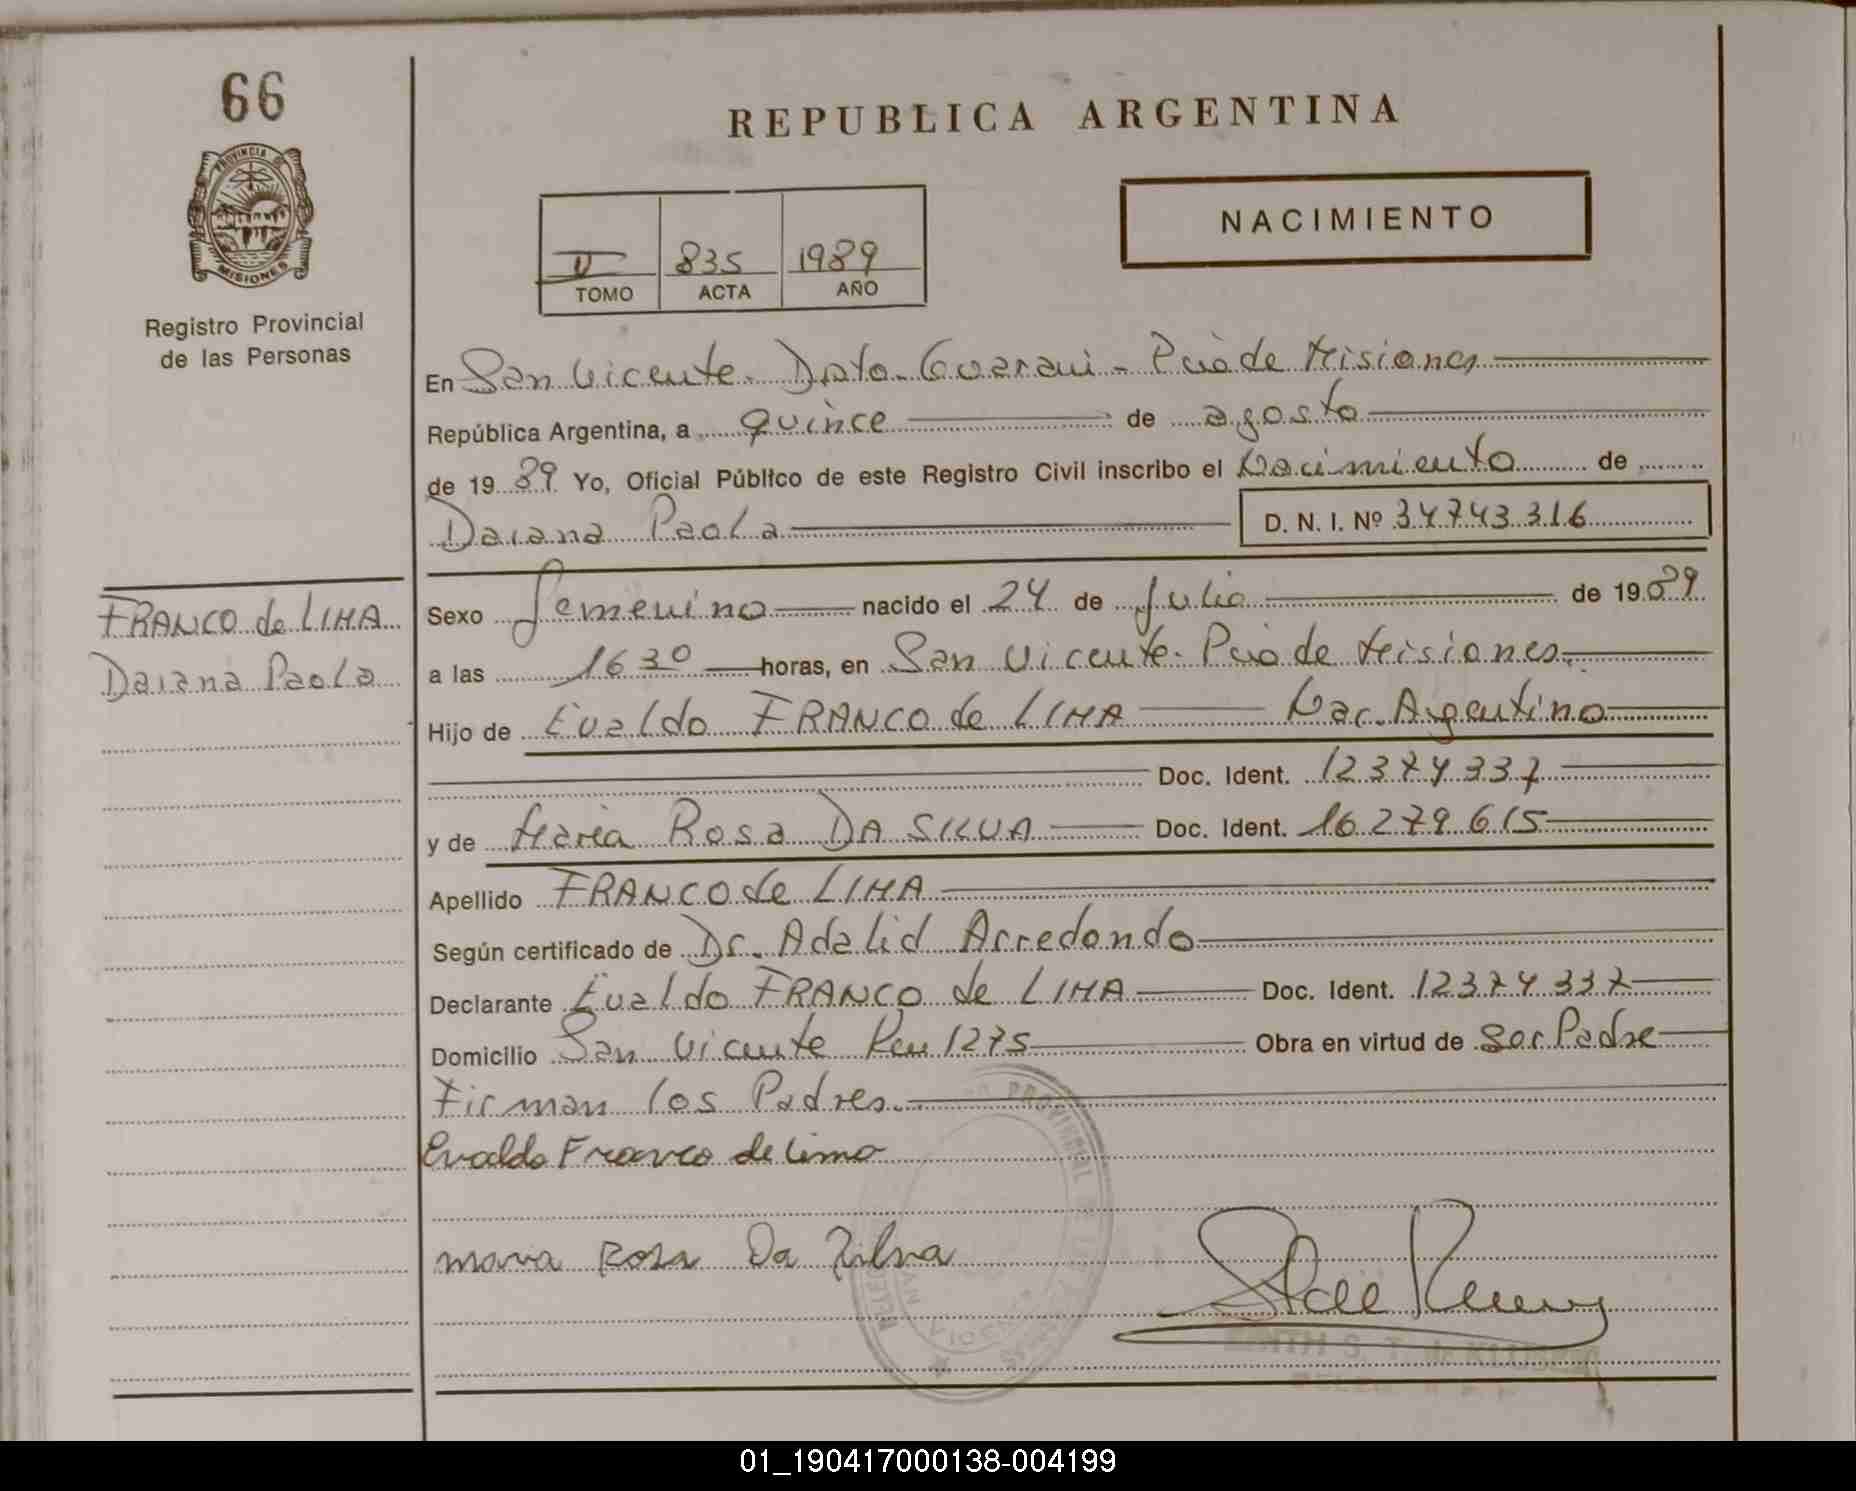 66
PROVINCIA DE
MISIONES
Registro Provincial
de las Personas
FRANCO de LIMA
Daiana Paola
REPUBLICA ARGENTINA
NACIMIENTO
II 835 1989
TOMO ACTA AÑO
En San Vicente - Dpto - Guarani - Pcia de Misiones
República Argentina, a quince de agosto
de 1989 Yo, Oficial Público de este Registro Civil inscribo el Nacimiento de
Daiana Paola D. N. I. Nº 34743316
Sexo femenino nacido el 24 de Julio de 1989
a las 16 30 horas, en San Vicente - Pcia de Misiones
Hijo de Evaldo FRANCO de LIMA Nac. Argentino
Doc. Ident. 12374337
y de Maria Rosa DA SILVA Doc. Ident. 16279615
Apellido FRANCO de LIMA
Según certificado de Dr. Adalid Arredondo
Declarante Evaldo FRANCO de LIMA Doc. Ident. 12374337
Domicilio San Vicente Km 1275 Obra en virtud de Ser Padre
Firman los Padres.
Evaldo Franco de Lima
Maria Rosa Da Silva
01_190417000138-004199